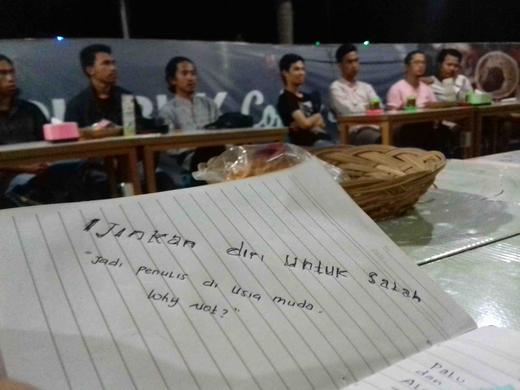 Ijinkan diri untuk salah
"Jadi penulis di usia muda.
Why not?"
Palu
dan